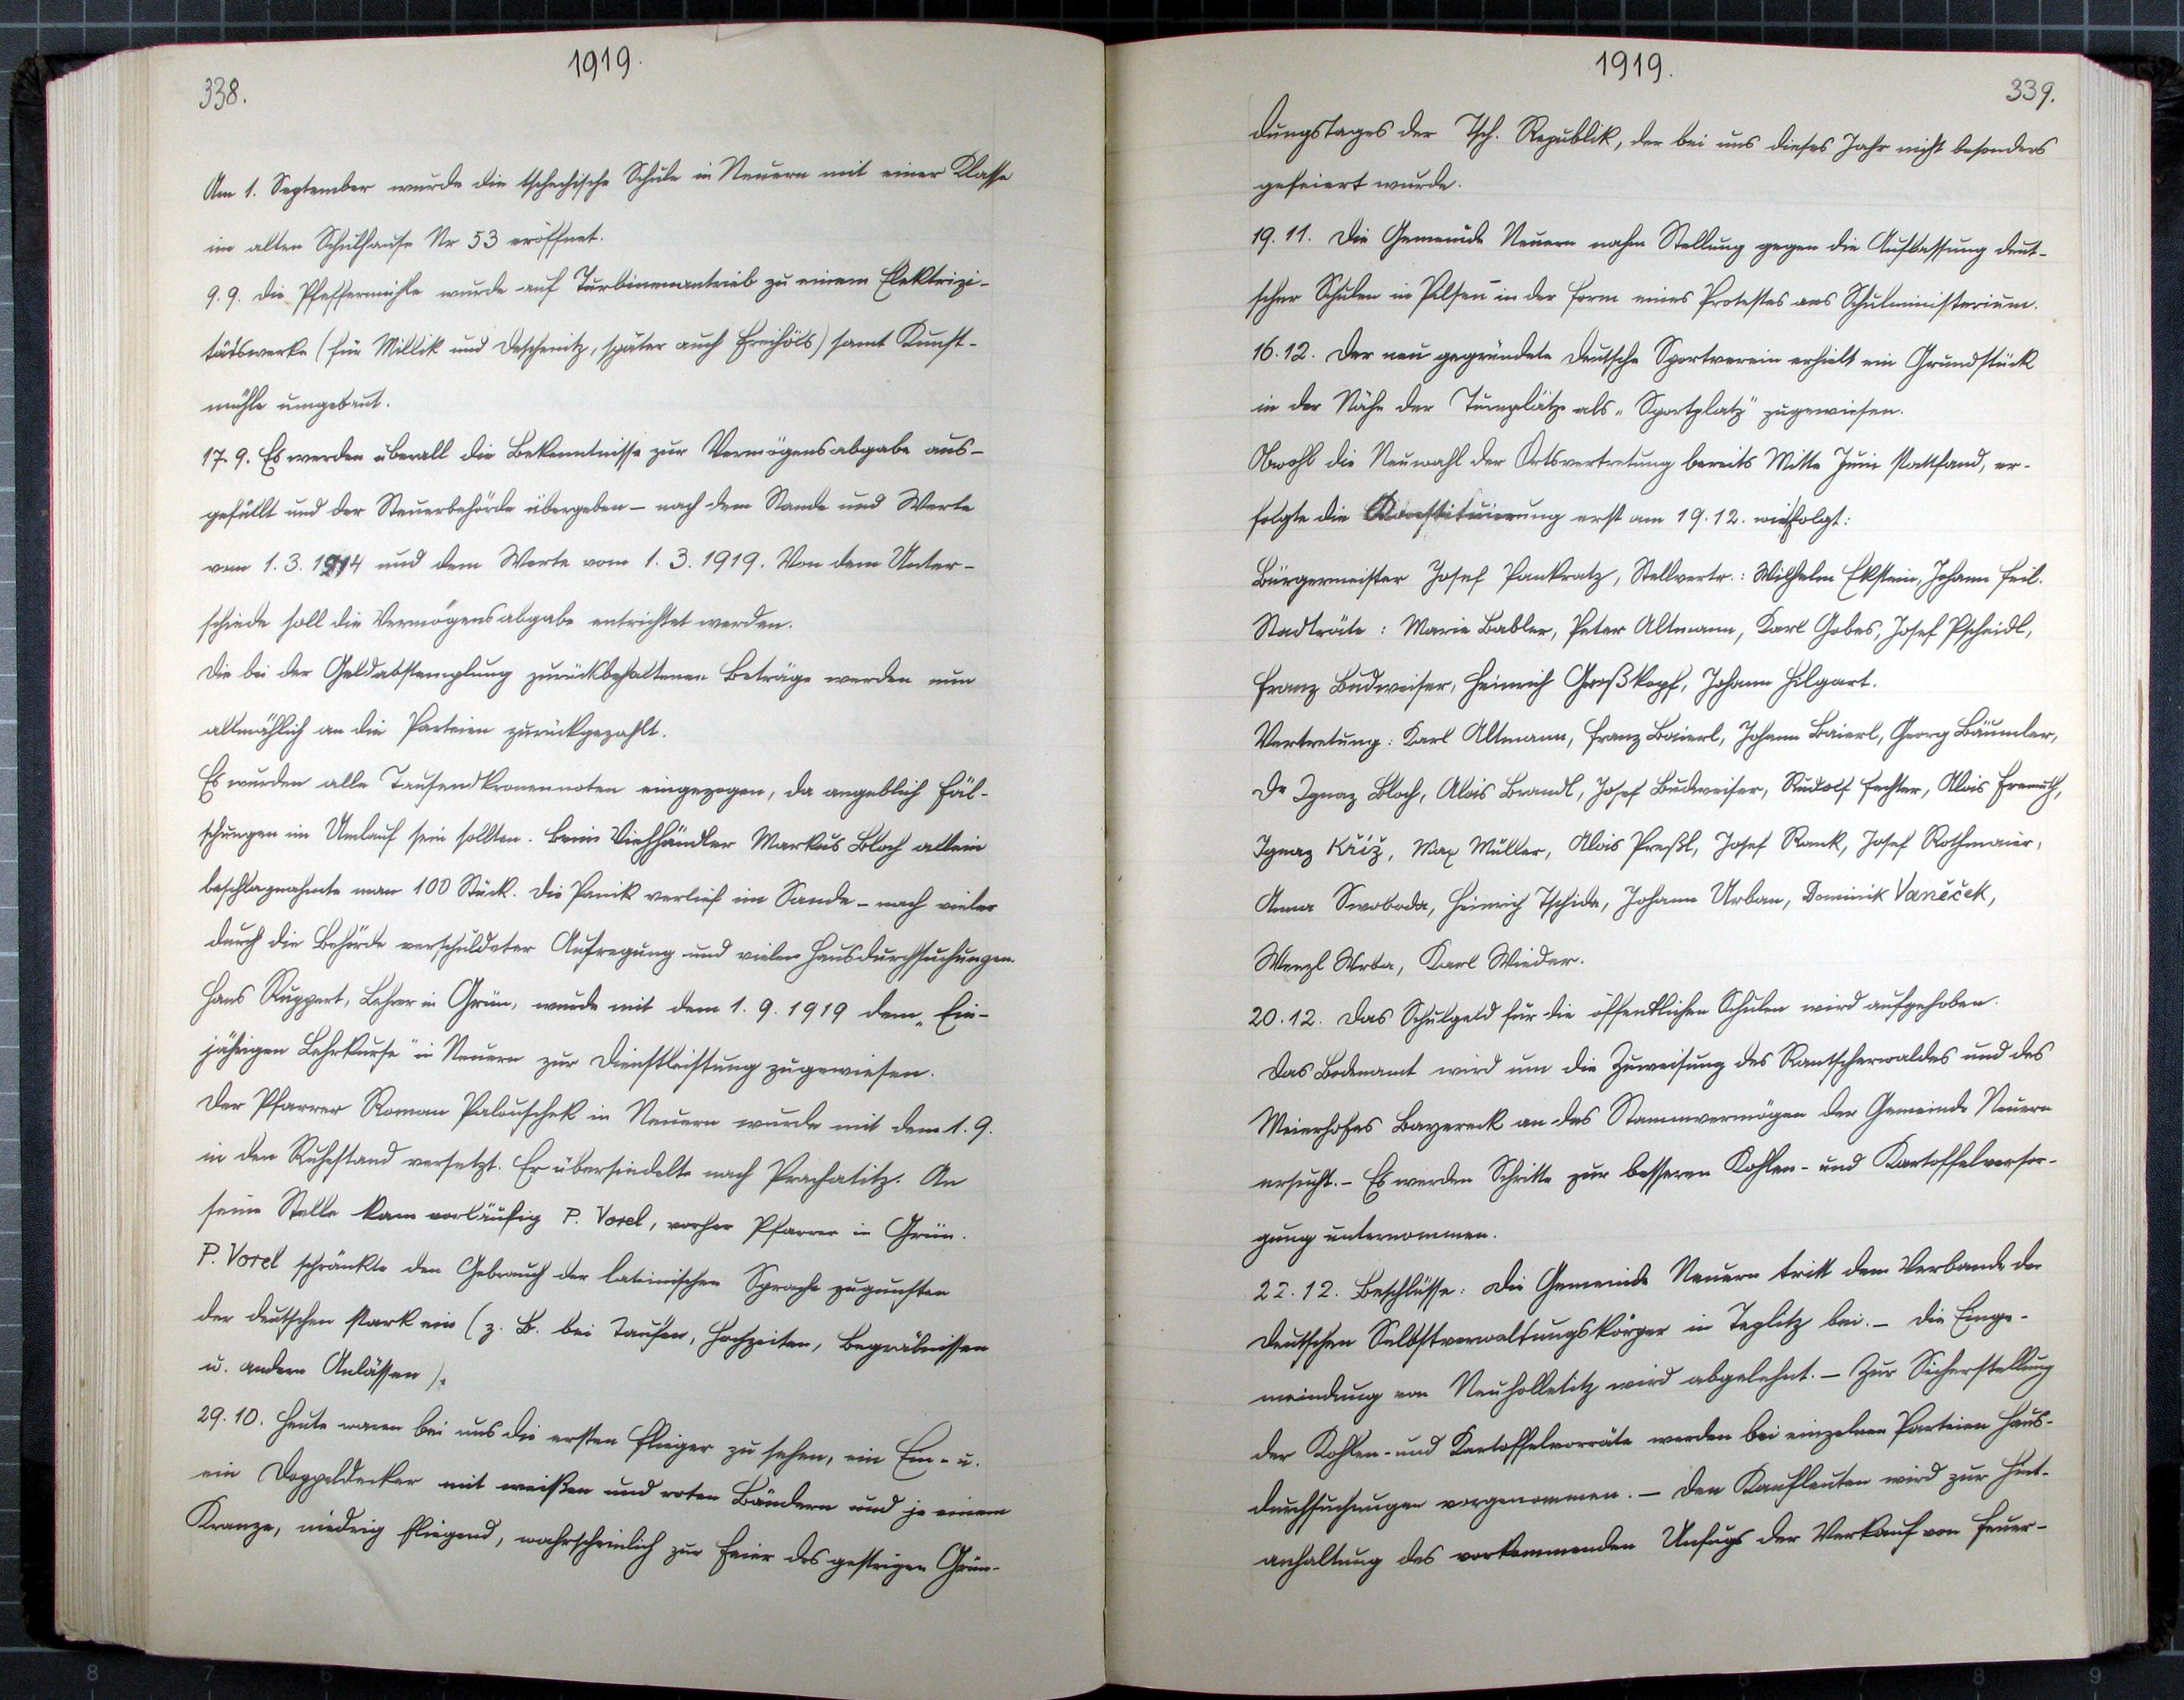 1919.
338.
Am 1. September wurde die tschechische Schule in Neuern mit einer Klasse
im alten Schulhause Nr 53 eröffnet.
9. 9. Die Pfeffermühle wurde auf Turbinenantrieb zu einem Elektrizi-
tätswerke (für Millik und Deschenitz, später auch Freihöls) samt Kunst-
mühle umgebaut.
17. 9. Es werden überall die Bekenntnisse zur Vermögensabgabe aus-
gefüllt und der Steuerbehörde übergeben – nach dem Stande und Werte
vom 1. 3. 1914 und dem Werte vom 1. 3. 1919. Von dem Unter-
schiede soll die Vermögensabgabe entrichtet werden.
Die bei der Geldabstemplung zurückbehaltenen Beträge werden nun
allmählich an die Parteien zurückgezahlt.
Es wurden alle Tausendkronennoten eingezogen, da angeblich Fäl-
schungen im Umlauf sein sollten. Beim Viehhändler Markus Bloch allein
beschlagnahmte man 100 Stück. Die Panik verlief im Sande – nach vieler
durch die Behörde verschuldeter Aufregung und vielen Hausdurchsuchungen.
Hans Ruppert, Lehrer in Grün, wurde mit dem 1. 9. 1919 dem „Ein-
jährigen Lehrkurse" in Neuern zur Dienstleistung zugewiesen.
Der Pfarrer Roman Palouschek in Neuern wurde mit dem 1. 9.
in den Ruhestand versetzt. Er übersiedelte nach Prachatitz. An
seine Stelle kam vorläufig P. Vorel, vorher Pfarrer in Grün.
P. Vorel schränkte den Gebrauch der lateinischen Sprache zugunsten
der deutschen stark ein (z. B. bei Taufen, Hochzeiten, Begräbnissen
u. andern Anlässen).
29. 10. Heute waren bei uns die ersten Flieger zu sehen, ein Ein- u.
ein Doppeldecker mit weißen und roten Bändern und je einem
Kranze, niedrig fliegend, wahrscheinlich zur Feier des gestrigen Grün-
1919.
339.
dungstages der Tsch. Republik, der bei uns dieses Jahr nicht besonders
gefeiert wurde.
19. 11. Die Gemeinde Neuern nahm Stellung gegen die Auflassung deut-
scher Schulen in Pilsen in der Form eines Protestes ans Schulministerium.
16. 12. Der neu gegründete Deutsche Sportverein erhielt ein Grundstück
in der Nähe der Turnplätze als „Sportplatz" zugewiesen.
Obwohl die Neuwahl der Ortsvertretung bereits Mitte Juni stattfand, er-
folgte die Konstituierung erst am 19. 12. wie folgt:
Bürgermeister Josef Pankratz, Stellvertr.: Wilhelm Ekstein, Johann Feil.
Stadträte: Marie Babler, Peter Altmann, Karl Gobes, Josef Pscheidl,
Franz Budweiser, Heinrich Großkopf, Johann Hilgart.
Vertretung: Karl Altmann, Franz Baierl, Johann Baierl, Georg Bäumler,
Dr Ignaz Bloch, Alois Brandl, Josef Budweiser, Rudolf Fechter, Alois Fremuth,
Ignaz Křiž, Max Müller, Alois Preßl, Josef Rank, Josef Rothmaier,
Anna Swoboda, Heinrich Tschida, Johann Urban, Dominik Vaněček,
Wenzl Wrba, Karl Wieder.
20. 12. Das Schulgeld für die öffentlichen Schulen wird aufgehoben.
Das Bodenamt wird um die Zuweisung des Rantscherwaldes und des
Meierhofes Bayereck an das Stammvermögen der Gemeinde Neuern
ersucht. – Es werden Schritte zur besseren Kohlen- und Kartoffelversor-
gung unternommen.
22. 12. Beschlüsse: Die Gemeinde Neuern tritt dem Verbande der
deutschen Selbstverwaltungskörper in Teplitz bei. – Die Einge-
meindung von Neuholletitz wird abgelehnt. – Zur Sicherstellung
der Kohlen- und Kartoffelvorräte werden bei einzelnen Parteien Haus-
durchsuchungen vorgenommen. – Den Kaufleuten wird zur Hint-
anhaltung des vorkommenden Unfugs der Verkauf von Feuer-
8 7 6 5 6 7 8 9